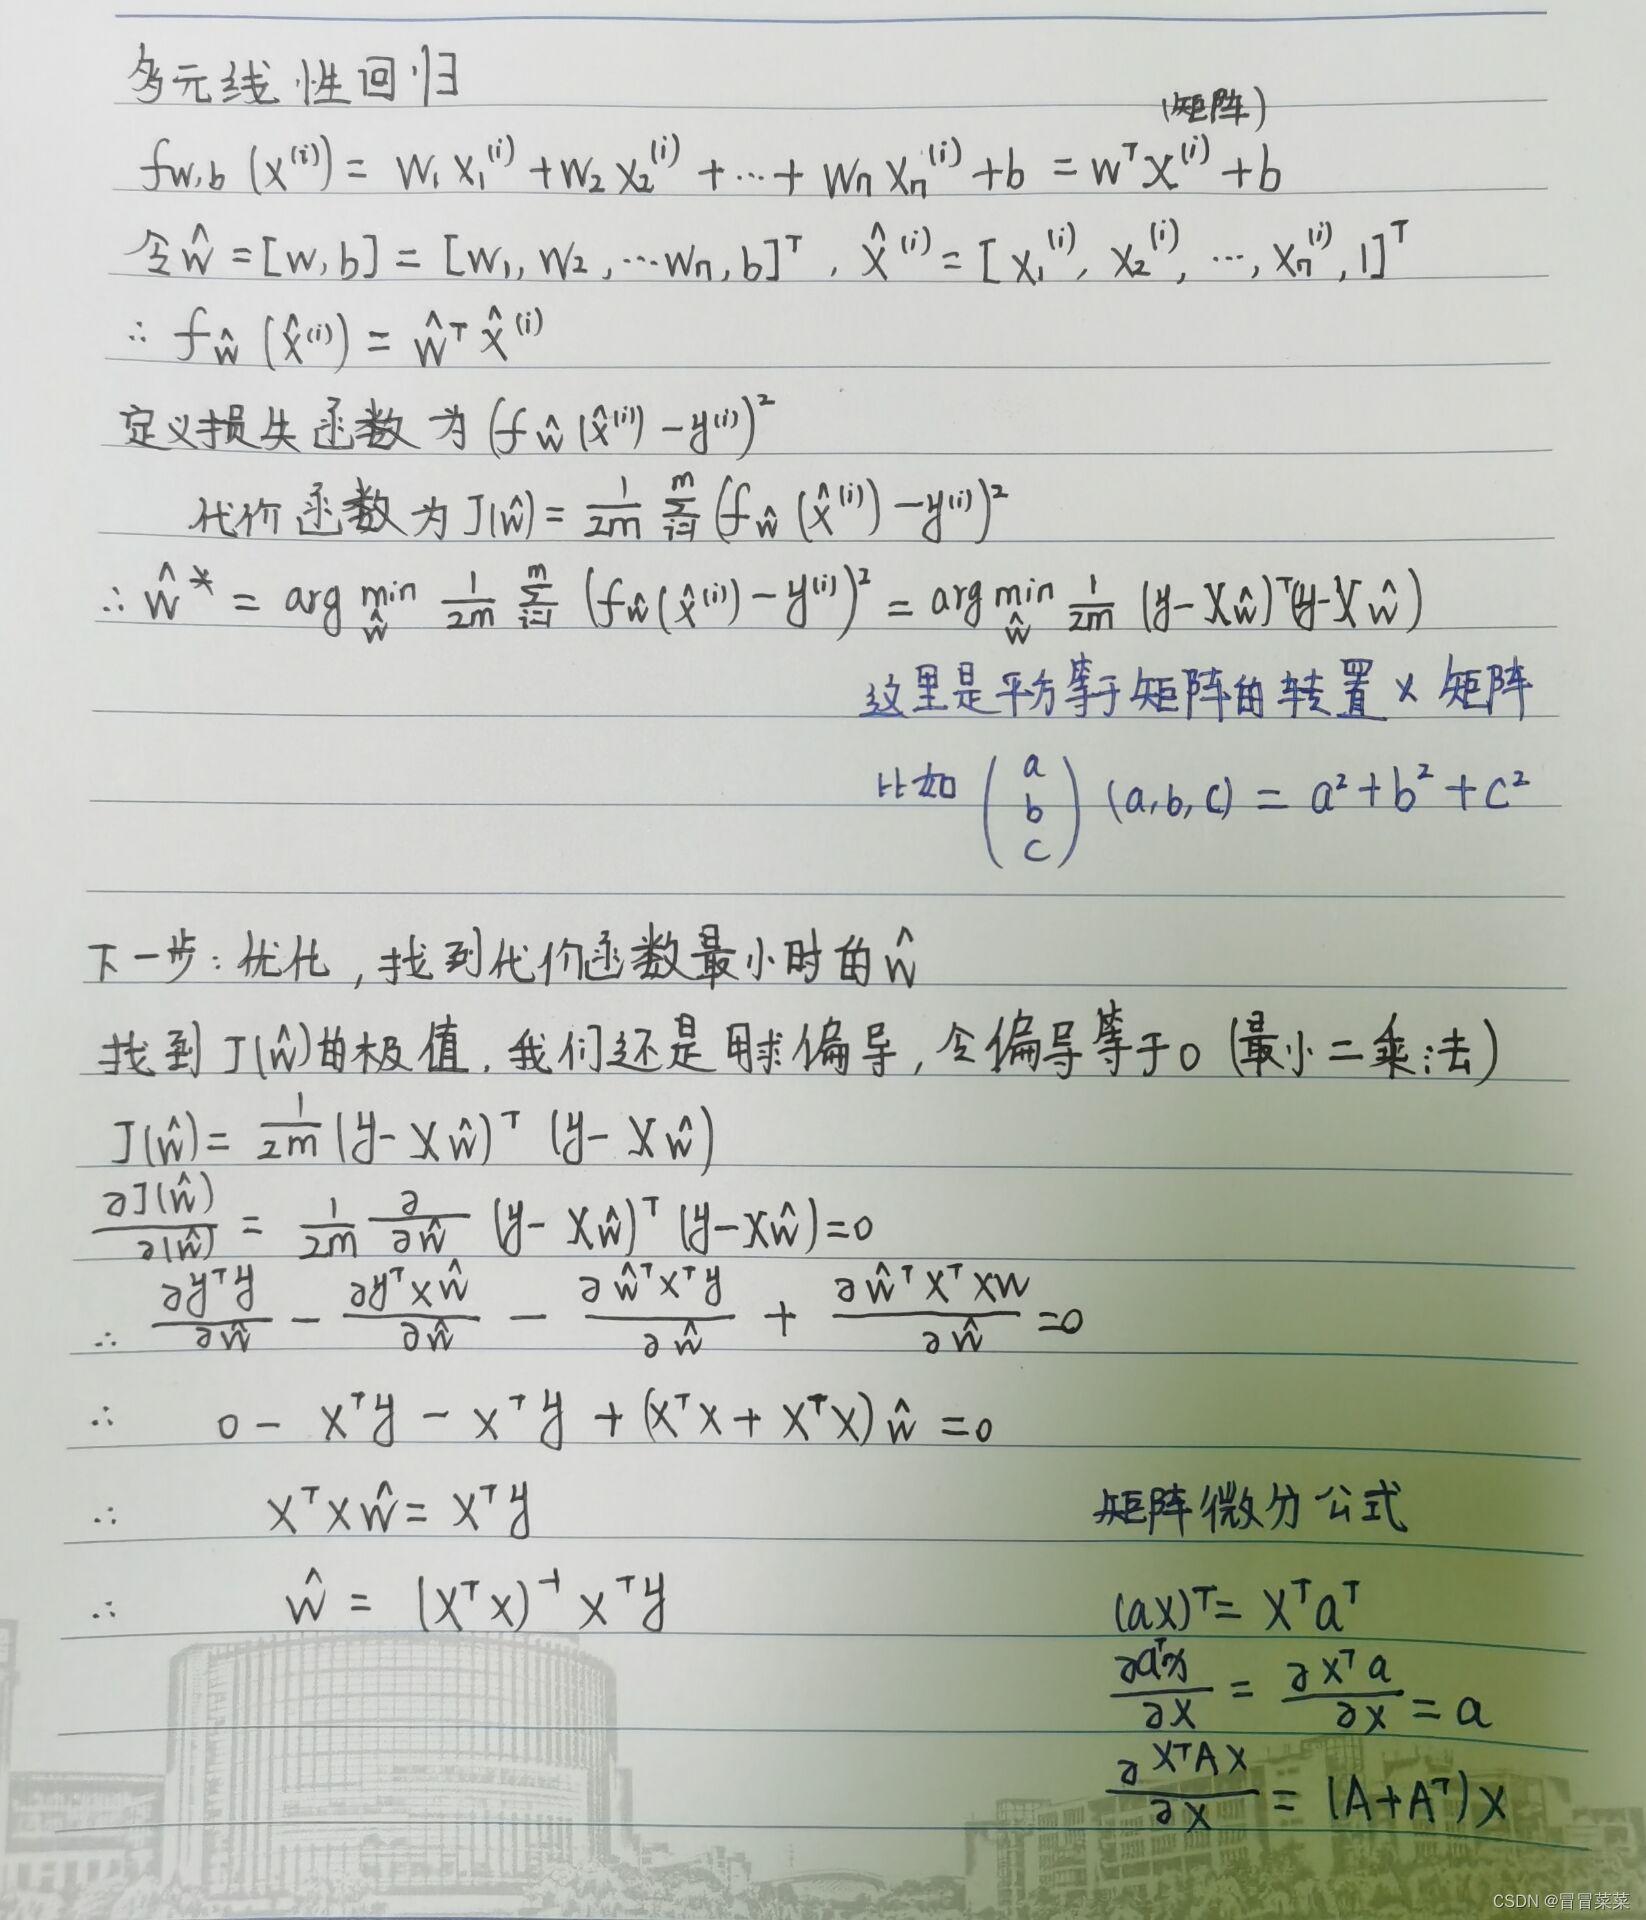 多元线性回归
(矩阵)
f_{w,b}(x^{(i)}) = w₁x₁^{(i)} + w₂x₂^{(i)} + … + wₙxₙ^{(i)} + b = w^T x^{(i)} + b
令ŵ = [w, b] = [w₁, w₂, …wₙ, b]^T , x̂^{(i)} = [x₁^{(i)}, x₂^{(i)}, …, xₙ^{(i)}, 1]^T
∴ f_ŵ(x̂^{(i)}) = ŵ^T x̂^{(i)}
定义损失函数为 (f_ŵ(x̂^{(i)}) − y^{(i)})²
代价函数为 J(ŵ) = 1/2m Σ_{i=1}^{m} (f_ŵ(x̂^{(i)}) − y^{(i)})²
∴ ŵ* = arg min_ŵ 1/2m Σ_{i=1}^{m} (f_ŵ(x̂^{(i)}) − y^{(i)})² = arg min_ŵ 1/2m (y − Xŵ)^T(y − Xŵ)
这里是平方等于矩阵的转置 × 矩阵
比如 (a b c) (a, b, c) = a² + b² + c²
下一步：优化，找到代价函数最小时的ŵ
找到J(ŵ)的极值，我们还是用求偏导，令偏导等于0（最小二乘法）
J(ŵ) = 1/2m (y − Xŵ)^T (y − Xŵ)
∂J(ŵ)/∂(ŵ) = 1/2m ∂/∂ŵ (y − Xŵ)^T (y − Xŵ) = 0
∴ ∂y^T y/∂ŵ − ∂y^T xŵ/∂ŵ − ∂ŵ^T x^T y/∂ŵ + ∂ŵ^T x^T xw/∂ŵ = 0
∴ 0 − x^T y − x^T y + (x^T x + x^T x)ŵ = 0
∴ x^T xŵ = x^T y
矩阵微分公式
∴ ŵ = (x^T x)^{-1} x^T y
(ax)^T = x^T a^T
∂a^T x/∂x = ∂x^T a/∂x = a
∂x^T A x/∂x = (A + A^T)x
CSDN @冒冒菜菜